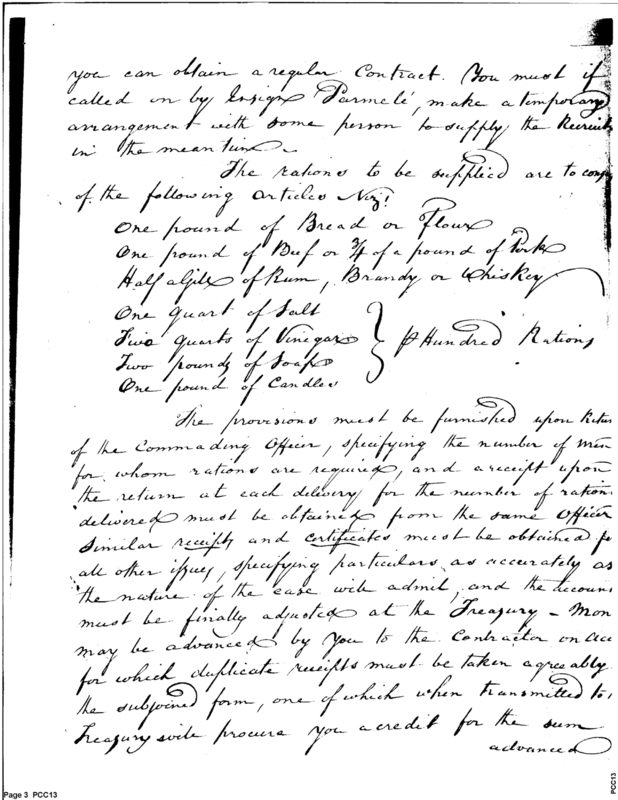 you can obtain a regular Contract. You must if
called on by Ensign Parmelé, make a temporary
arrangement with some person to supply the Recruits
in the meantime.
The rations to be supplied are to
of the following articles Viz!
One pound of Bread or Flour
One pound of Beef or 3/4 of a pound of Pork
Half a Gill of Rum, Brandy or Whiskey
One quart of Salt
Two quarts of Vinegar
Two pounds of Soap
One pound of Candles
Hundred Rations
The provisions must be furnished upon Retur
of the Commading Officer, specifying the number of Men
for whom rations are required, and a receipt upon
the return at each delivery for the number of ration
delivered must be obtained from the same Officer
Similar receipts and certificates must be obtained fo
all other issues, specifying particulars as accurately as
the nature of the case will admit, and the accoun
must be finally adjusted at the Treasury - Mon
may be advanced by you to the Contractor on acc
for which duplicate receipts must be taken agreably
the subjoined form, one of which when transmitted to
Treasury will procure you a credit for the sum
advanced
Page 3 PCC13
PCC13